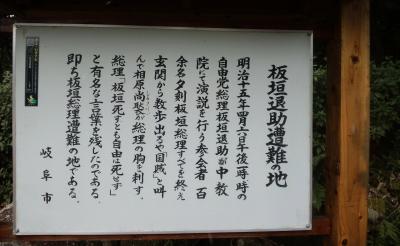 板垣退助遭難の地
明治十五年四月六日午後一時の時
自由党総理板垣退助が中教
院にて演説を行う参会者百
余名夕刻板垣総理すべてを終え
玄関から数歩出るや「国賊」と叫
んで相原尚褧が総理の胸を刺す。
総理「板垣死すとも自由は死せず」
と有名な言葉を残したのである。
即ち板垣総理遭難の地である。
岐阜市